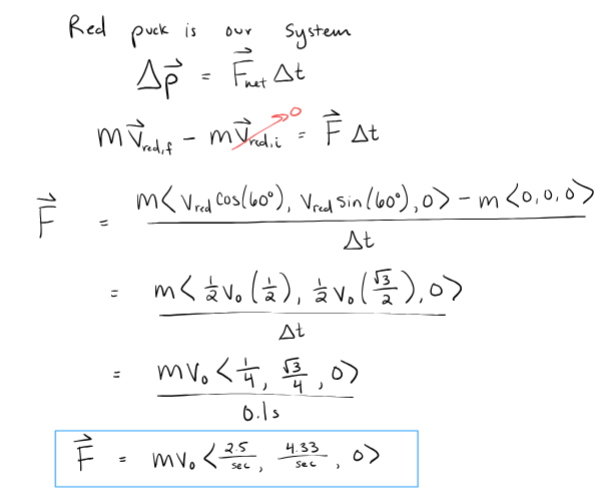 Red puck is our System
Δp⃗ = F⃗net Δt
mv⃗red,f − mv⃗red,i → 0 = F⃗ Δt
F⃗ = (m<Vred cos(60°), Vred sin(60°), 0> − m<0,0,0>) / Δt
= m<½v₀(½), ½v₀(√3/2), 0> / Δt
= mv₀<1/4, √3/4, 0> / 0.1s
F⃗ = mv₀<2.5/sec, 4.33/sec, 0>